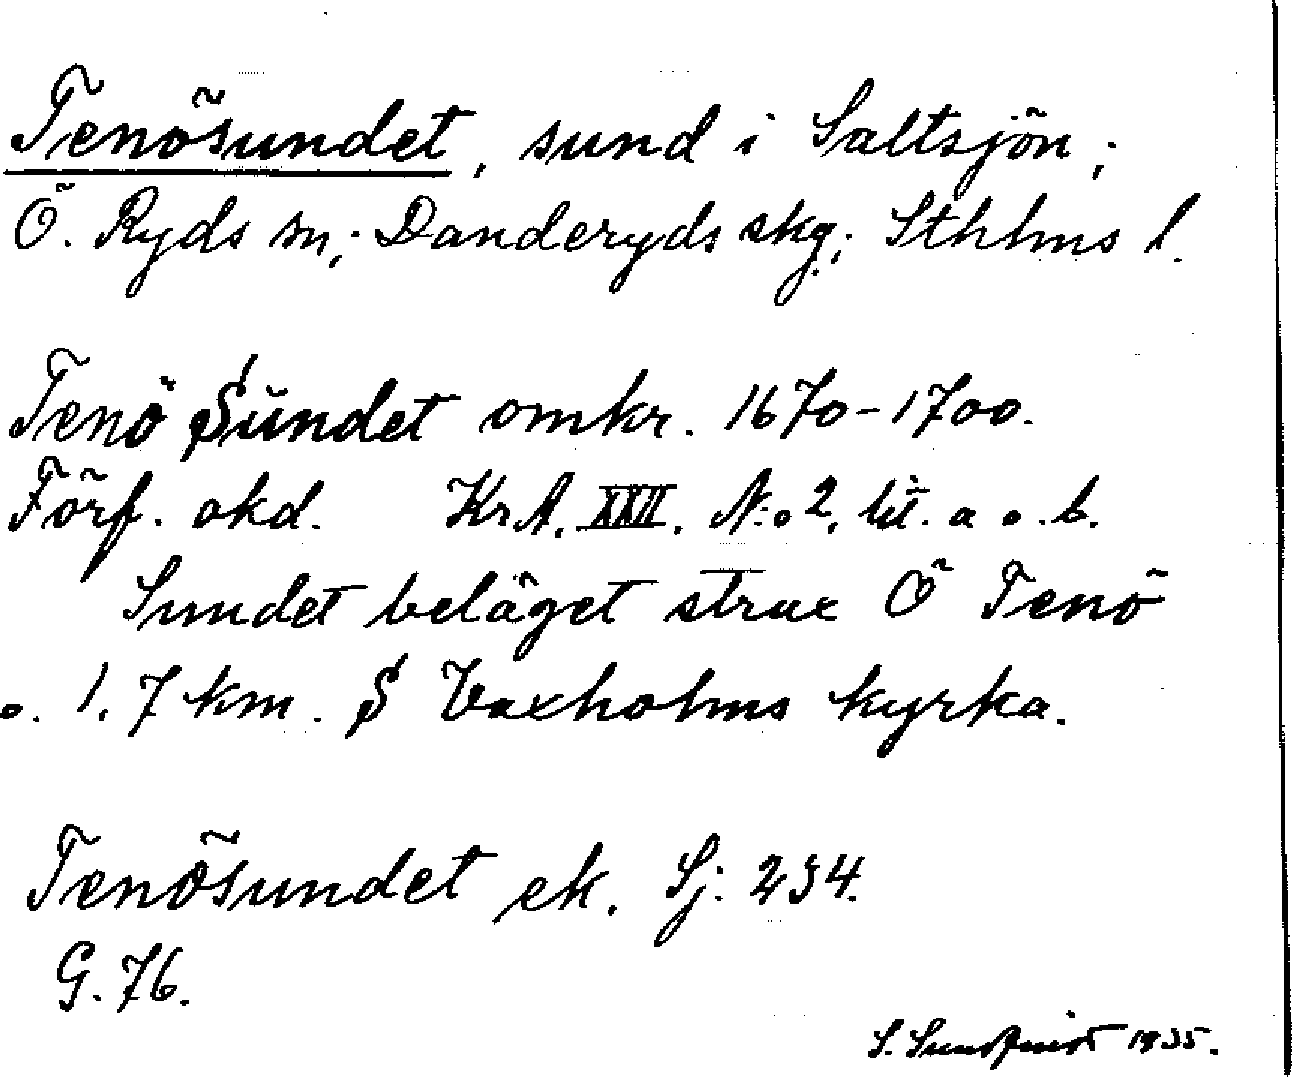 Tenösundet, sund i Saltsjön;
Ö. Ryds sn; Danderyds skg; Sthlms l.
Tenö Sundet omkr. 1670-1700.
Förf. okd. KrA. XXII. N:o 2. lit. a o. b.
Sundet beläget strax Ö Tenö
o. 1.7 km. S Vaxholms kyrka.
Tenösundet ek. Sj: 234.
G. 76.
S. Sundqvist 1935.